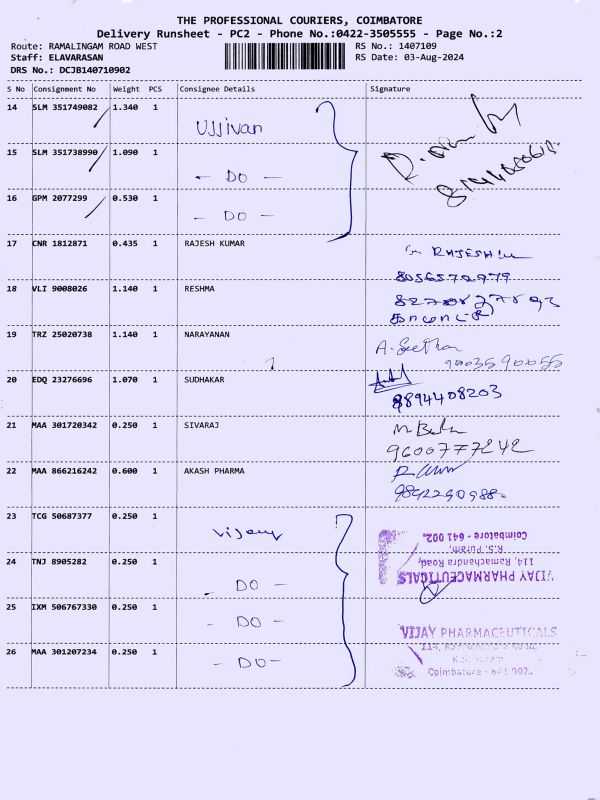 THE PROFESSIONAL COURIERS, COIMBATORE
Delivery Runsheet - PC2 - Phone No.:0422-3505555 - Page No.:2
Route: RAMALINGAM ROAD WEST
RS No.: 1407109
Staff: ELAVARASAN
RS Date: 03-Aug-2024
DRS No.: DCJB140710902
S No Consignment No Weight PCS Consignee Details Signature
14 SLM 351749082 1.340 1
Ujjivan
15 SLM 351738990 1.090 1
- DO -
16 GPM 2077299 0.530 1
- DO -
17 CNR 1812871 0.435 1 RAJESH KUMAR
RAJESH
8056572979
18 VLI 9008026 1.140 1 RESHMA
19 TRZ 25020738 1.140 1 NARAYANAN
20 EDQ 23276696 1.070 1 SUDHAKAR
8894408203
21 MAA 301720342 0.250 1 SIVARAJ
9600777242
22 MAA 866216242 0.600 1 AKASH PHARMA
9892290988.
23 TCG 50687377 0.250 1
Vijay
24 TNJ 8905282 0.250 1
- DO -
VIJAY PHARMACEUTICALS
114, Ramachandra Road,
R.S. Puram,
Coimbatore - 641 002.
25 IXM 506767330 0.250 1
- DO -
26 MAA 301207234 0.250 1
- DO -
VIJAY PHARMACEUTICALS
Coimbatore - 641 002.